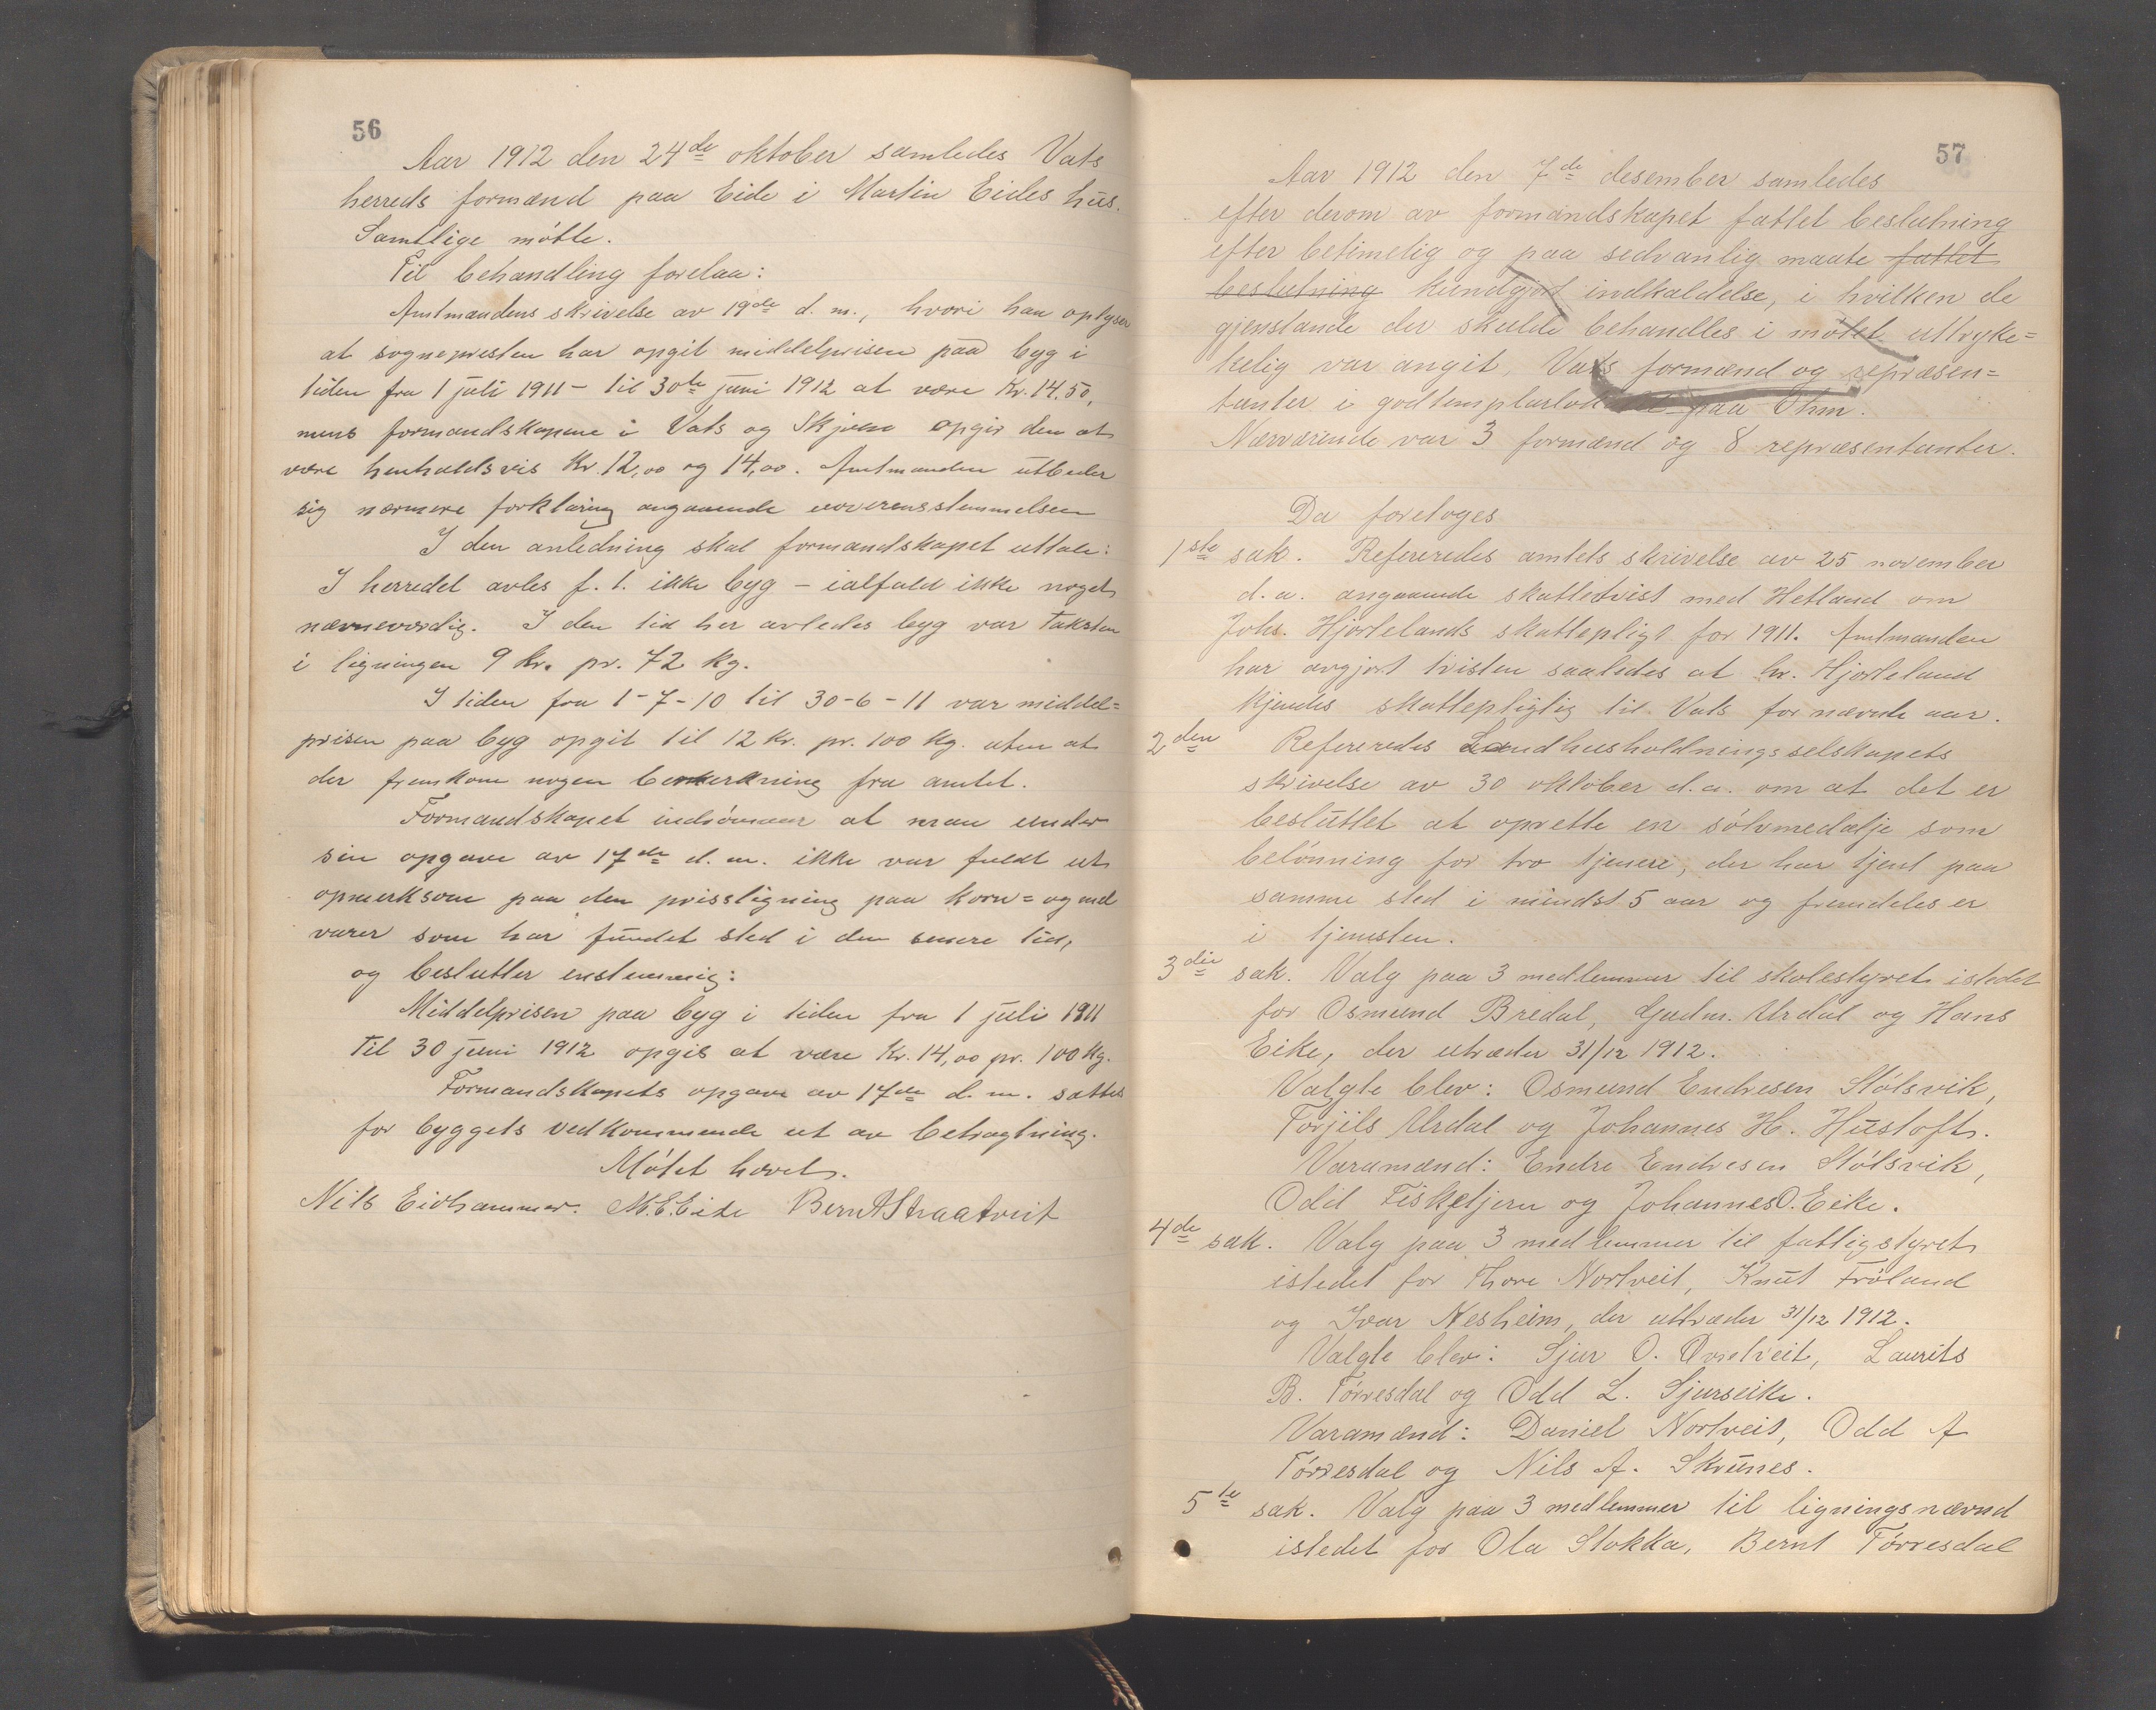 56
Aar 1912 den 24de oktober samledes Vats
herreds formænd paa Eide i Martin Eides hus.
Samtlige møtte.
Til behandling forelaa:
Amtmandens skrivelse av 19de d. m., hvori han oplyser
at sognepresten har opgit middelprisen paa byg i
tiden fra 1 juli 1911 – til 30te juni 1912 at være Kr. 14.50,
mens formandskapene i Vats og Skjold opgir den at
være henholdsvis Kr. 12,00 og 14,00. Amtmanden utbeder
sig nærmere forklaring angaaende uoverensstemmelsen
I den anledning skal formandskapet uttale:
I herredet avles f. t. ikke byg – ialfald ikke noget
nævneværdig. I den tid her avledes byg var taksten
i ligningen 9 kr. pr. 72 kg.
I tiden fra 1-7-10 til 30-6-11 var middel=
prisen paa byg opgit til 12 kr. pr. 100 kg. uten at
der fremkom nogen bemerkning fra amtet.
Formandskapet indrømmer at man under
sin opgave av 17de d. m. ikke var fuldt ut
opmerksom paa den prisstigning paa korn= og mel
varer som har fundet sted i den senere tid,
og beslutter enstemmig:
Middelprisen paa byg i tiden fra 1 juli 1911
til 30 juni 1912 opgis at være Kr. 14,00 pr. 100 kg.
Formandskapets opgave av 17de d. m. sættes
for byggets vedkommende ut av betragtning.
Møtet hævet.
Nils Eidhammer. M. E. Eide Bernt A Straatveit
57
Aar 1912 den 7de desember samledes
efter derom av formandskapet fattet beslutning
efter betimelig og paa sedvanlig maate fattet
beslutning kundgjort indkaldelse, i hvilken de
gjenstande der skulde behandles i møtet uttryke=
kelig var angit, Vats formænd og repræsen=
tanter i godtemplarlokalet paa Ohm.
Nærværende var 3 formænd og 8 repræsentanter.
Da foretoges
1ste sak. Refereredes amtets skrivelse av 25 november
d. a. angaaende skattetvist med Hetland om
Johs. Hjortelands skattepligt for 1911. Amtmanden
har avgjort tvisten saaledes at hr. Hjorteland
kjendes skattepligtig til Vats for nævnte aar.
2den Refereredes Landhusholdningsselskapets
skrivelse av 30 oktober d. a. om at det er
besluttet at oprette en sølvmedalje som
belønning for tro tjenere, der har tjent paa
samme sted i mindst 5 aar og fremdeles er
i tjenesten.
3die sak. Valg paa 3 medlemmer til skolestyret istedet
for Osmund Bredal, Gudm. Urdal og Hans
Eike, der utræder 31/12 1912.
Valgte blev: Osmund Endresen Stølsvik,
Torjils Urdal og Johannes H. Hustoft.
Varamænd: Endre Endresen Stølsvik,
Odd Fisketjern og Johannes O. Eike.
4de sak. Valg paa 3 medlemmer til fattigstyret
istedet for Thore Nortveit, Knut Frøland
og Ivar Nesheim, der uttræder 31/12 1912.
Valgte blev: Sjur O. Øvretveit, Laurits
B. Tørresdal og Odd L. Sjurseike.
Varamænd: Daniel Nortveit, Odd A
Tørresdal og Nils A. Skrunes.
5te sak. Valg paa 3 medlemmer til ligningsnævnd
istedet for Ola Stokka, Bernt Tørresdal